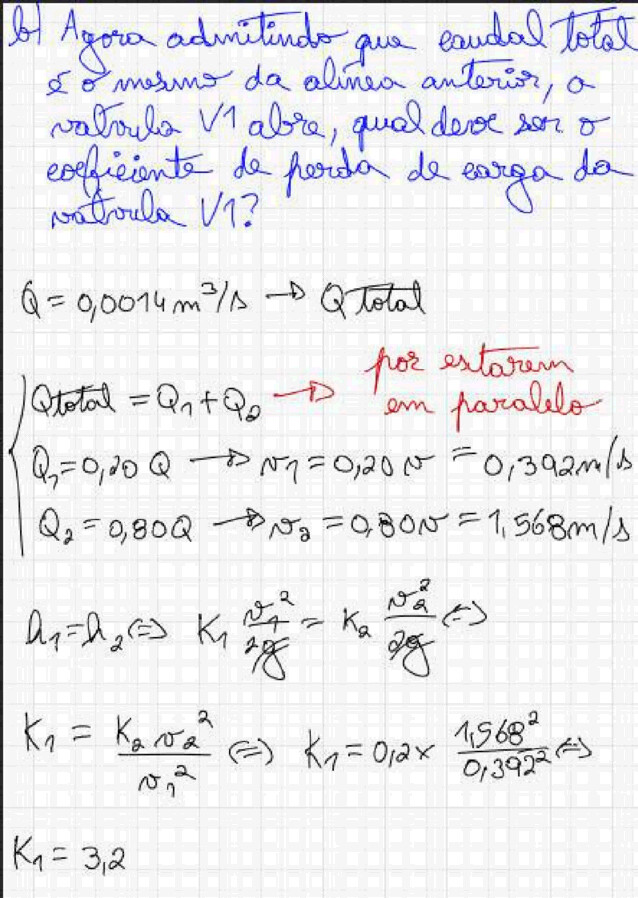 b) Agora admitindo que caudal total
é o mesmo da alínea anterior, a
valvula V1 abre, qual deve ser o
coeficiente de perda de carga da
valvula V1?
Q = 0,0014 m³/s → Q total
Qtotal = Q₁ + Q₂ → por estarem
em paralelo
Q₁ = 0,20 Q → v₁ = 0,20 v = 0,392 m/s
Q₂ = 0,80Q → v₂ = 0,80v = 1,568 m/s
h₁ = h₂ (=) K₁ v₁²/2g = K₂ v₂²/2g (=)
K₁ = K₂ v₂²/v₁² (=) K₁ = 0,2 × 1,568²/0,392² (=)
K₁ = 3,2